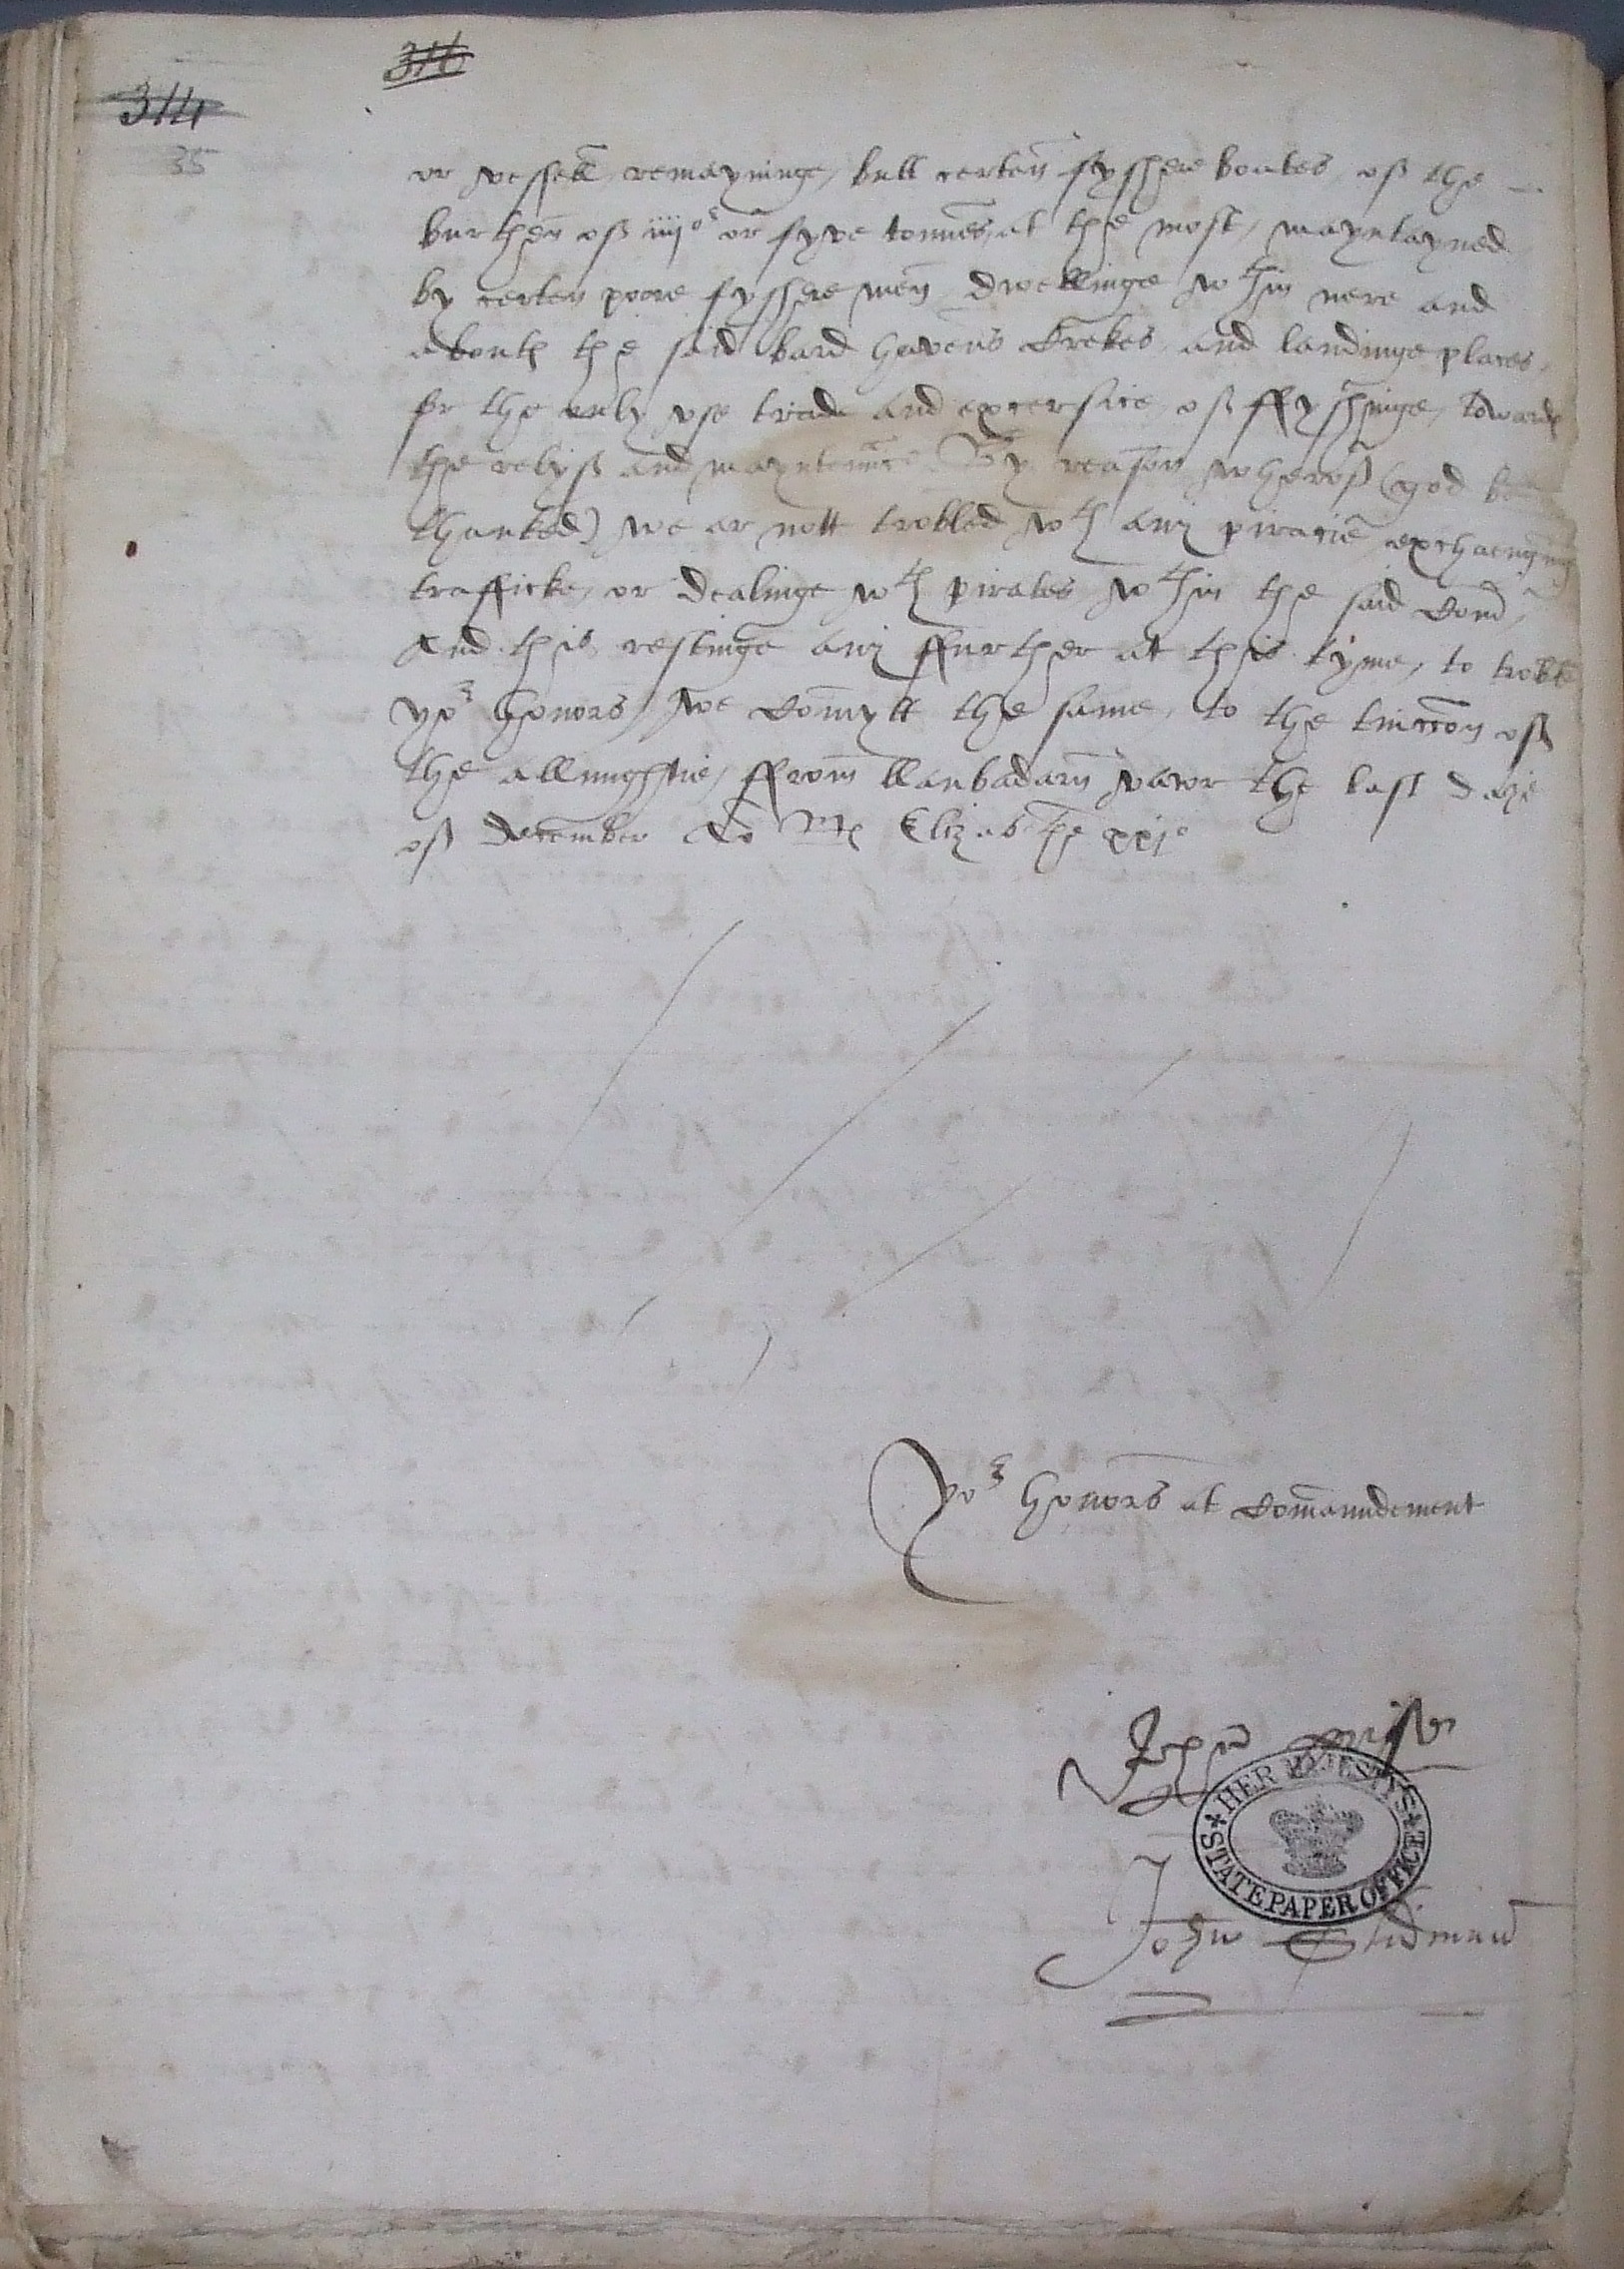 316
314
35
or vessell remayninge, butt certen fysshere boates of the
burthen of iiij or or fyve tonnes at the most, mayntayned
by certen poore fysshere men dwellinge wthin nere and
abouth the said bard havens Crekes and landinge places,
for the only use trade and excersice of ffysshinge, towardes
the relyff and mayntennce. By reason wheroff (god be
thanked) we ar nott trobled wth any piracie exchaenginge
trafficke, or dealinge wth pirates wthin the said Com,
And this restinge any ffurther at this tyme, to troble
yor honors, we Comytt the same, to the tuiccon off
the allmightie, ffrom llanbadarn vawr the last daye
off December Ao Rne Elizabthe xxjo
Yor honors at Comanndement
John
HER MAJESTY'S STATE PAPER OFFICE
John Stidman